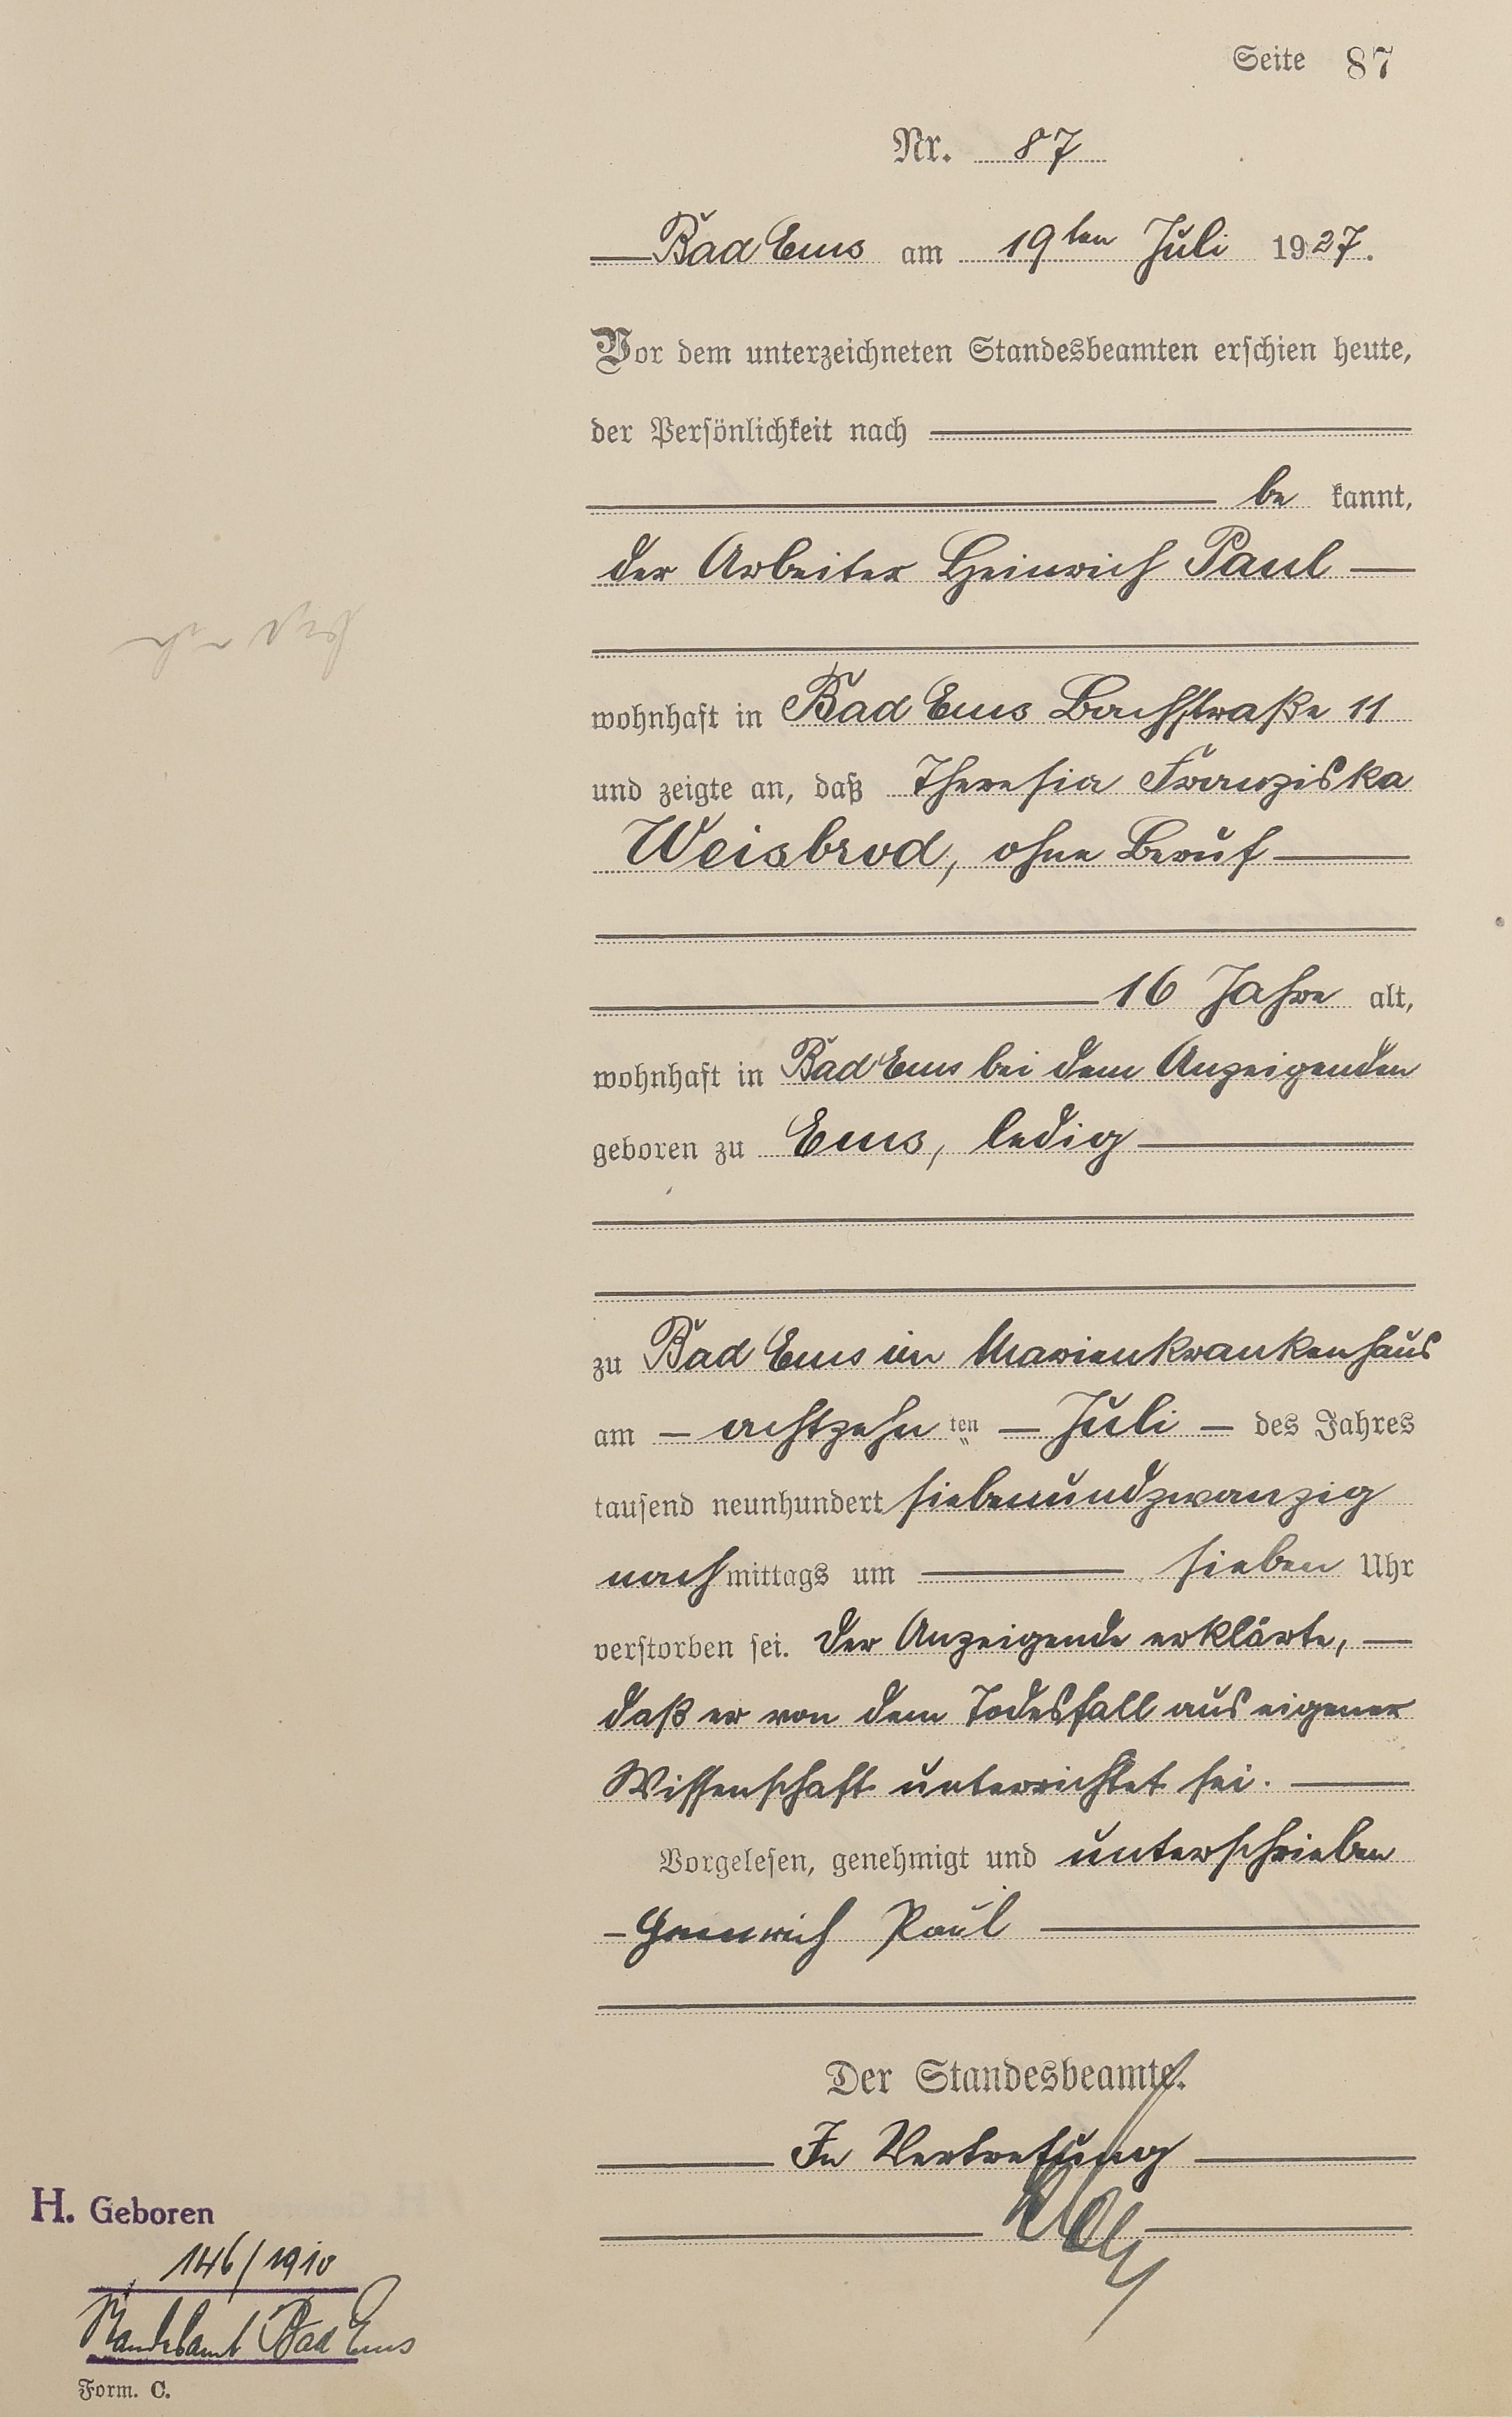 Seite 87
Nr. 87
Bad Ems am 19ten Juli 1927.
Vor dem unterzeichneten Standesbeamten erschien heute,
der Persönlichkeit nach
be kannt,
der Arbeiter Heinrich Paul
wohnhaft in Bad Ems Bachstraße 11
und zeigte an, daß Theresia Franziska
Weisbrod, ohne Beruf
16 Jahre alt,
wohnhaft in Bad Ems bei dem Anzeigenden
geboren zu Ems, ledig
zu Bad Ems im Marienkrankenhaus
am – achtzehn ten – Juli – des Jahres
tausend neunhundert siebenundzwanzig
nachmittags um sieben Uhr
verstorben sei. Der Anzeigende erklärte,
daß er von dem Todesfall aus eigener
Wissenschaft unterrichtet sei.
Vorgelesen, genehmigt und unterschrieben
Heinrich Paul
Der Standesbeamte.
In Vertretung
H. Geboren
146/1910
Standesamt Bad Ems
Form. C.